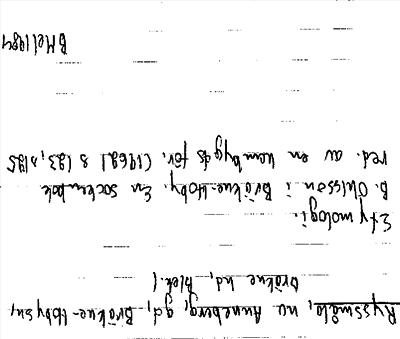 Ryssmåla, nu Anneberg, gd, Bräkne-Hoby sn,
Bräkne hd, Blek.(
Etymologi.
B. Ohlsson i Bräkne-Hoby. En sockenbok
red. av en hembygdsför. (1962) s 123, s 125
BHel 1984